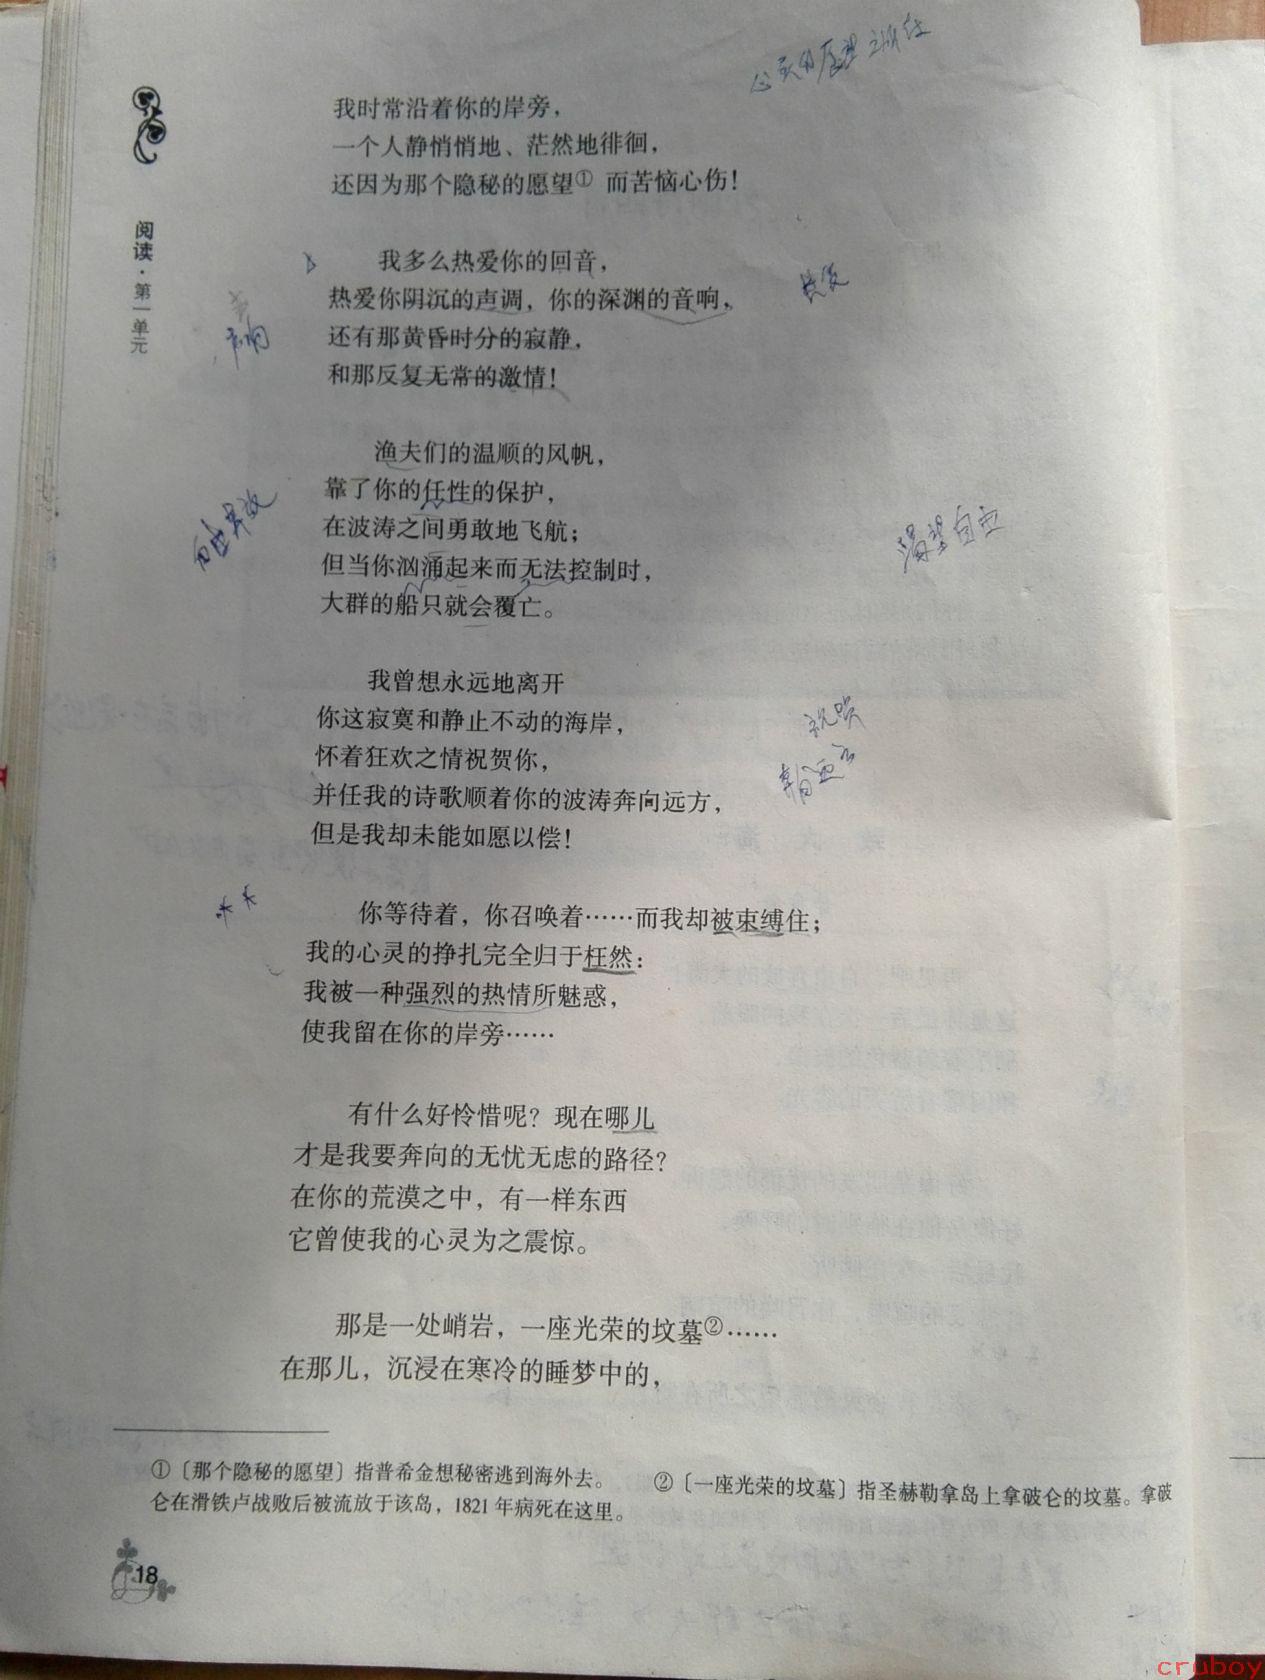 阅读·第一单元
我时常沿着你的岸旁，
一个人静悄悄地、茫然地徘徊，
还因为那个隐秘的愿望①而苦恼心伤！
我多么热爱你的回音，
热爱你阴沉的声调，你的深渊的音响，
还有那黄昏时分的寂静，
和那反复无常的激情！
渔夫们的温顺的风帆，
靠了你的任性的保护，
在波涛之间勇敢地飞航；
但当你汹涌起来而无法控制时，
大群的船只就会覆亡。
渴望自由
我曾想永远地离开
你这寂寞和静止不动的海岸，
怀着狂欢之情祝贺你，
并任我的诗歌顺着你的波涛奔向远方，
但是我却未能如愿以偿！
你等待着，你召唤着……而我却被束缚住；
我的心灵的挣扎完全归于枉然：
我被一种强烈的热情所魅惑，
使我留在你的岸旁……
有什么好怜惜呢？现在哪儿
才是我要奔向的无忧无虑的路径？
在你的荒漠之中，有一样东西
它曾使我的心灵为之震惊。
那是一处峭岩，一座光荣的坟墓②……
在那儿，沉浸在寒冷的睡梦中的，
①〔那个隐秘的愿望〕指普希金想秘密逃到海外去。 ②〔一座光荣的坟墓〕指圣赫勒拿岛上拿破仑的坟墓。拿破
仑在滑铁卢战败后被流放于该岛，1821年病死在这里。
18
cruboy